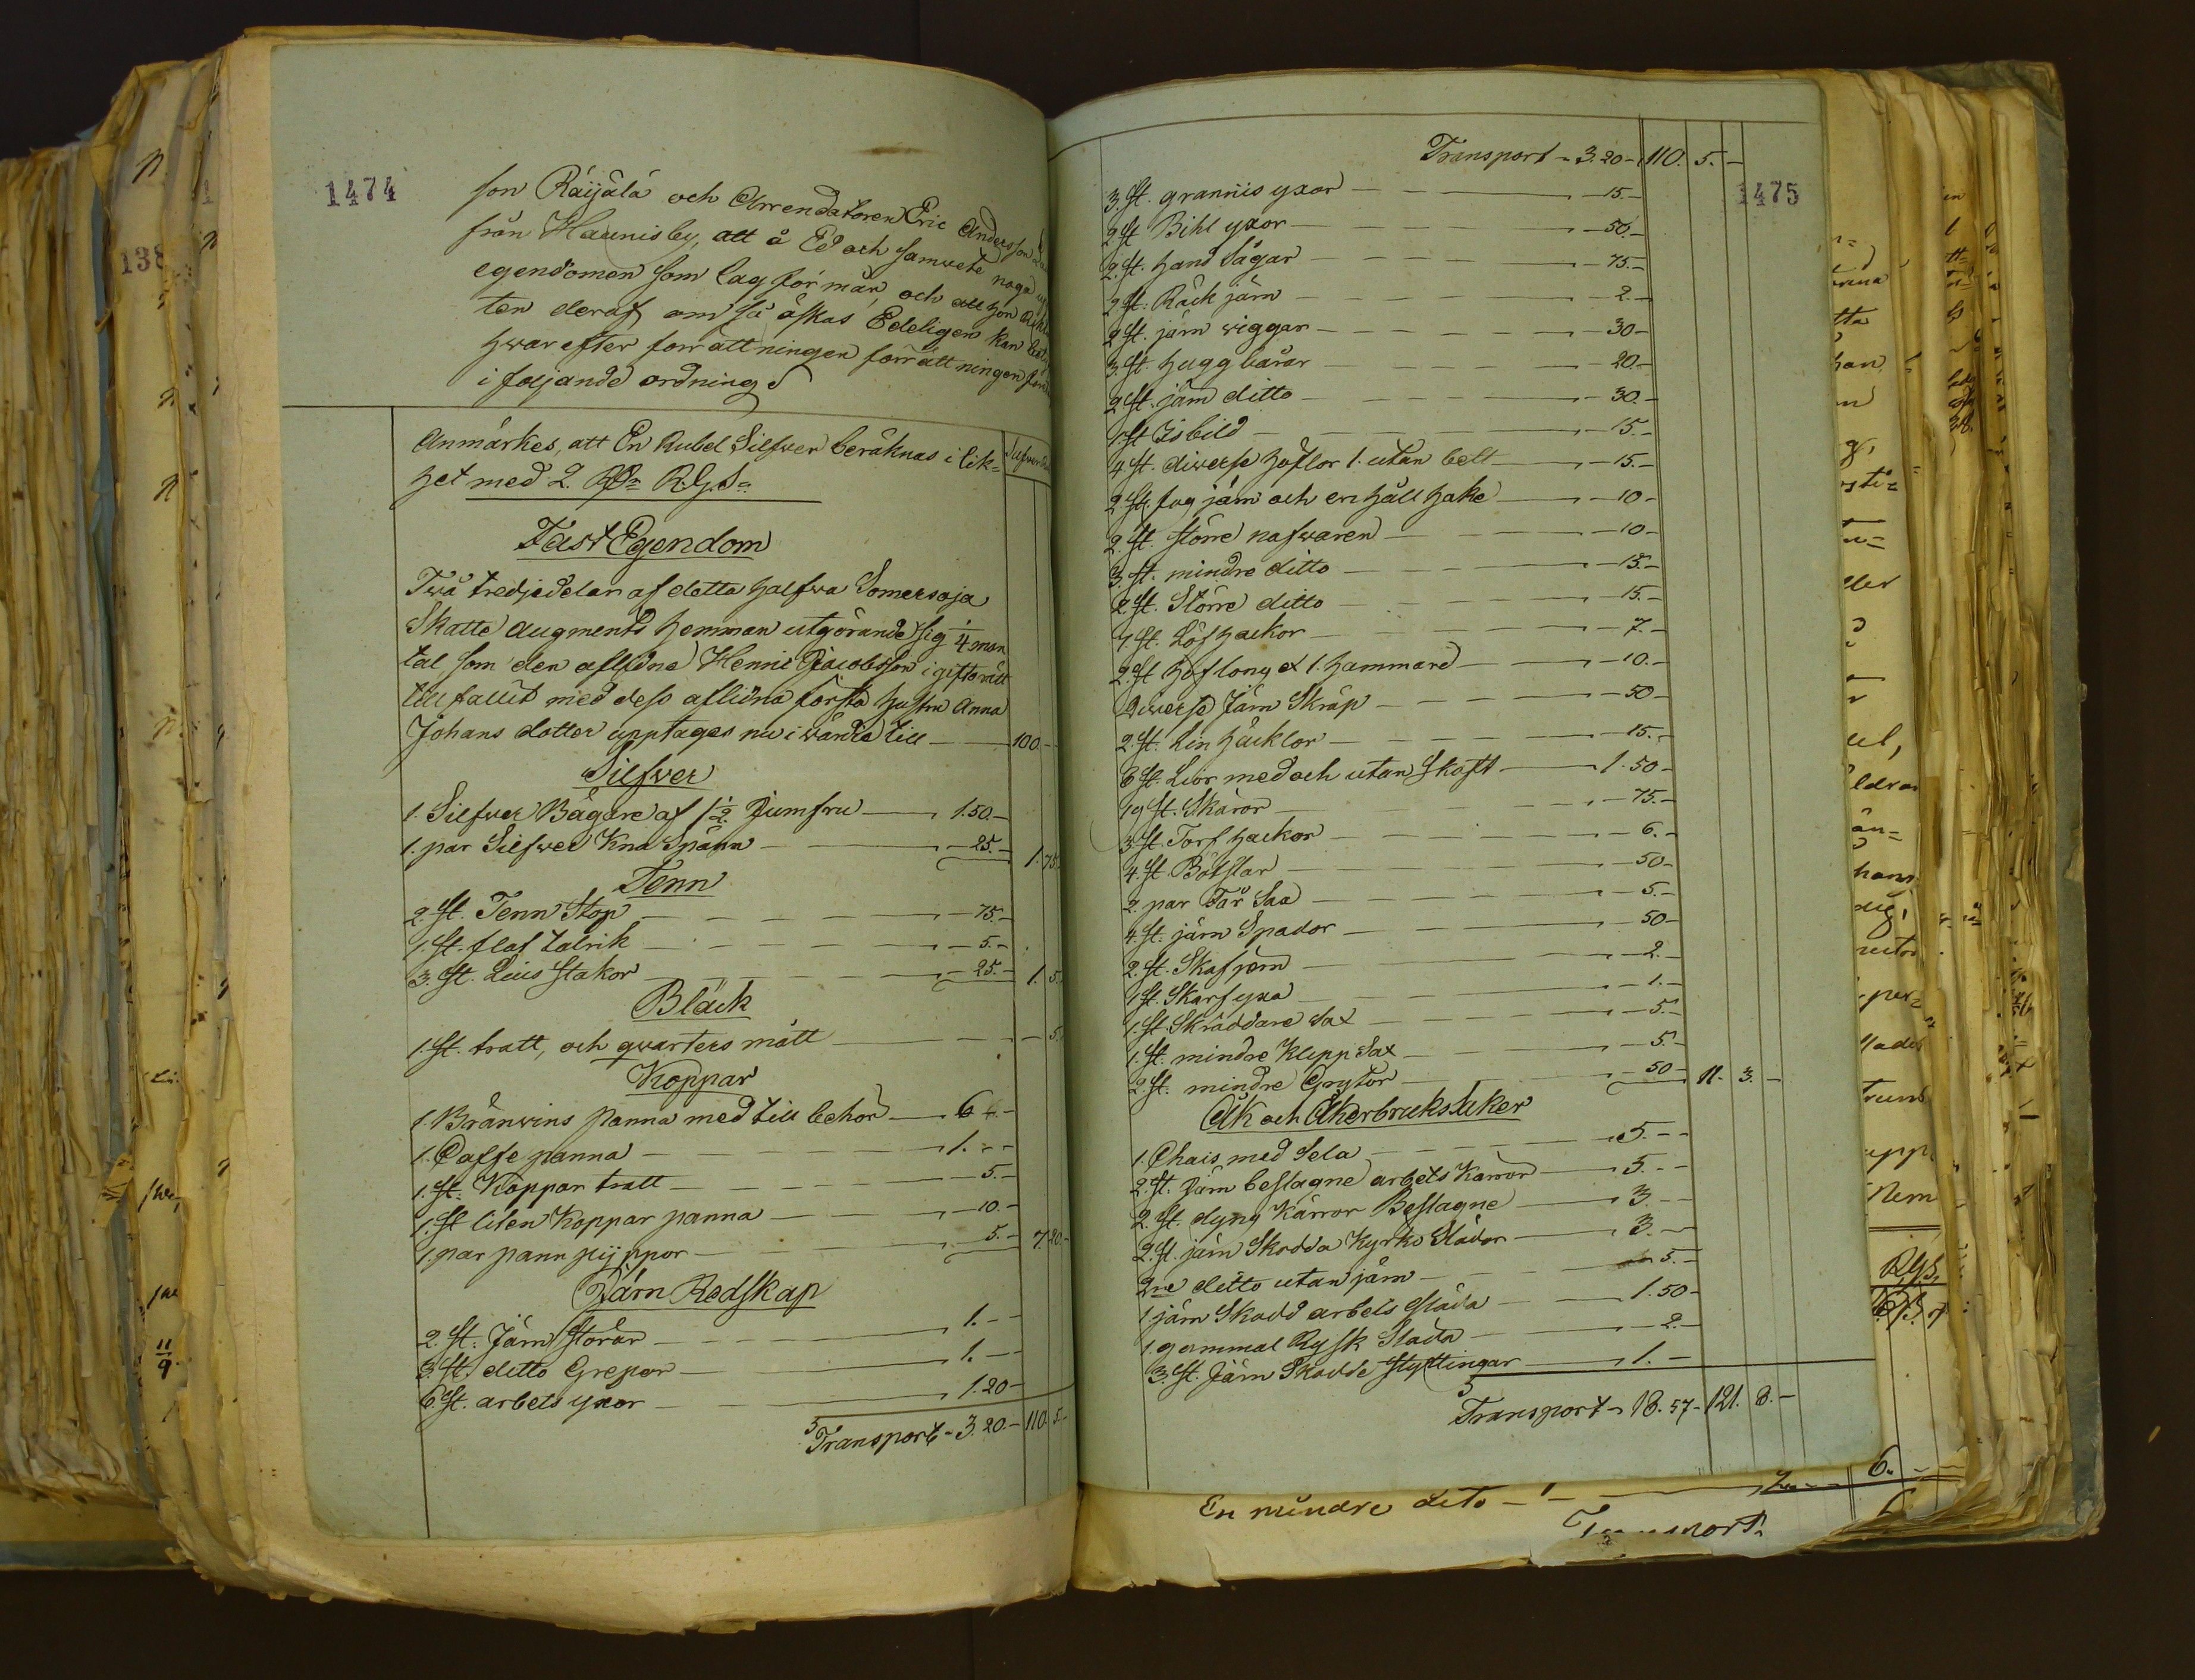 1474
son Räijälä och Arrendatoren Eric Andersson
från Haunisby, att å Ed och samvete noga
egendomen som lag förmår, och att hon
ten deraf om så äskas Edeligen kan
hvarefter förrättningen förrättningen
i följande ordning
Anmärkes, att En Rubel Silfwer beräknas i lik-
het med 2. RD: RGS:
Fast Egendom
Twå tredjedelar af detta halfwa Somersoja
Skatte Augments hemman utgörande sig 1/4 man
tal som den aflidne Henric Jacobsson i giftorätt
tillfallit med dess aflidna första hustru Anna
Johans dotter upptages nu i värde till — 100. -
Silfwer
1. Silfwer Bägare af 1 1/2 Jumfru — 1.50 -
1. par Silfwer Knä Spänn — 25. - 1. 75.
Tenn
2. st. Tenn Stop — 75. -
1. st. flat talrik — 5. -
3. st. Lius stakor — 25. - 1. 5.
Bläck
1. st. tratt, och qwarters mått — 5.
Koppar
1. Bränwins panna med till behör — 6. -
1. Caffe panna — 1. - -
1. st. Koppar tratt — 5. -
1. st liten Koppar panna — 10. -
1. par pann pijppor — 5. - 7. 20. -
Järn Redskap
2. st. Järn Störar — 1. - -
3. st. ditto Grepar — 1. - -
6. st. arbets yxor — 1.20 -
Transport - 3.20. - 110. 5. -
1475
Transport - 3.20 - 110. 5. -
3. st. grannis yxor — 15. -
2. st Bihl yxor — 50. -
2. st. hand Sågar — 75. -
2 st. Räck järn — 2. -
2 st. järn wiggar — 30 -
3. st. hugg bårar — 20 -
2 st. järn ditto — 30. -
1. st Isbild — 15. -
4 st. diverse höflor 1. utan bett — 15. -
2. st. fog järn och en håll hake — 10 -
2. st. större nafwaren — 10 -
3. st. mindre ditto — 15. -
2 st. Större ditto — 15. -
1. st. Löf hackor — 7. -
2. st hof tong et 1. hammare — 10. -
Diverse Järn Skrap — 50 -
2. st. Lin häcklor — 15. -
6 st. Liar med och utan Skaft — 1.50 -
19 st. Skäror — 75. -
3 st. Torf hackor — 6. -
4. st Bötslar — 50 -
2. par Får Sax — 5. -
4. st. järn Spador — 50 -
2. st. Skafjern — 2. -
1 st. Skarf yxa — 1. -
1. st. Skräddare Sax — 5. -
1. st. mindre Klipp Sax — 5. -
2. st. mindre Grytor — 50 - 11. 3. -
Åk och Åkerbruks saker
1. Chais med Sela — 5. - -
2. st. Järn beslagne arbets Kärror — 5. - -
2. st. dyng Kärror Beslagne — 3. - -
2. st. järn Skodda Kyrko Slädor — 3. - -
2ne ditto utan järn — 5. -
1 järn Skodd arbets släda — 1.50 -
1. gammal Rysk Släda — 2. -
3. st. Järn Skodde Styttingar — 1. -
Transport - 18.57 - 121. 8. -
En mindre dito - 1 -
Transport